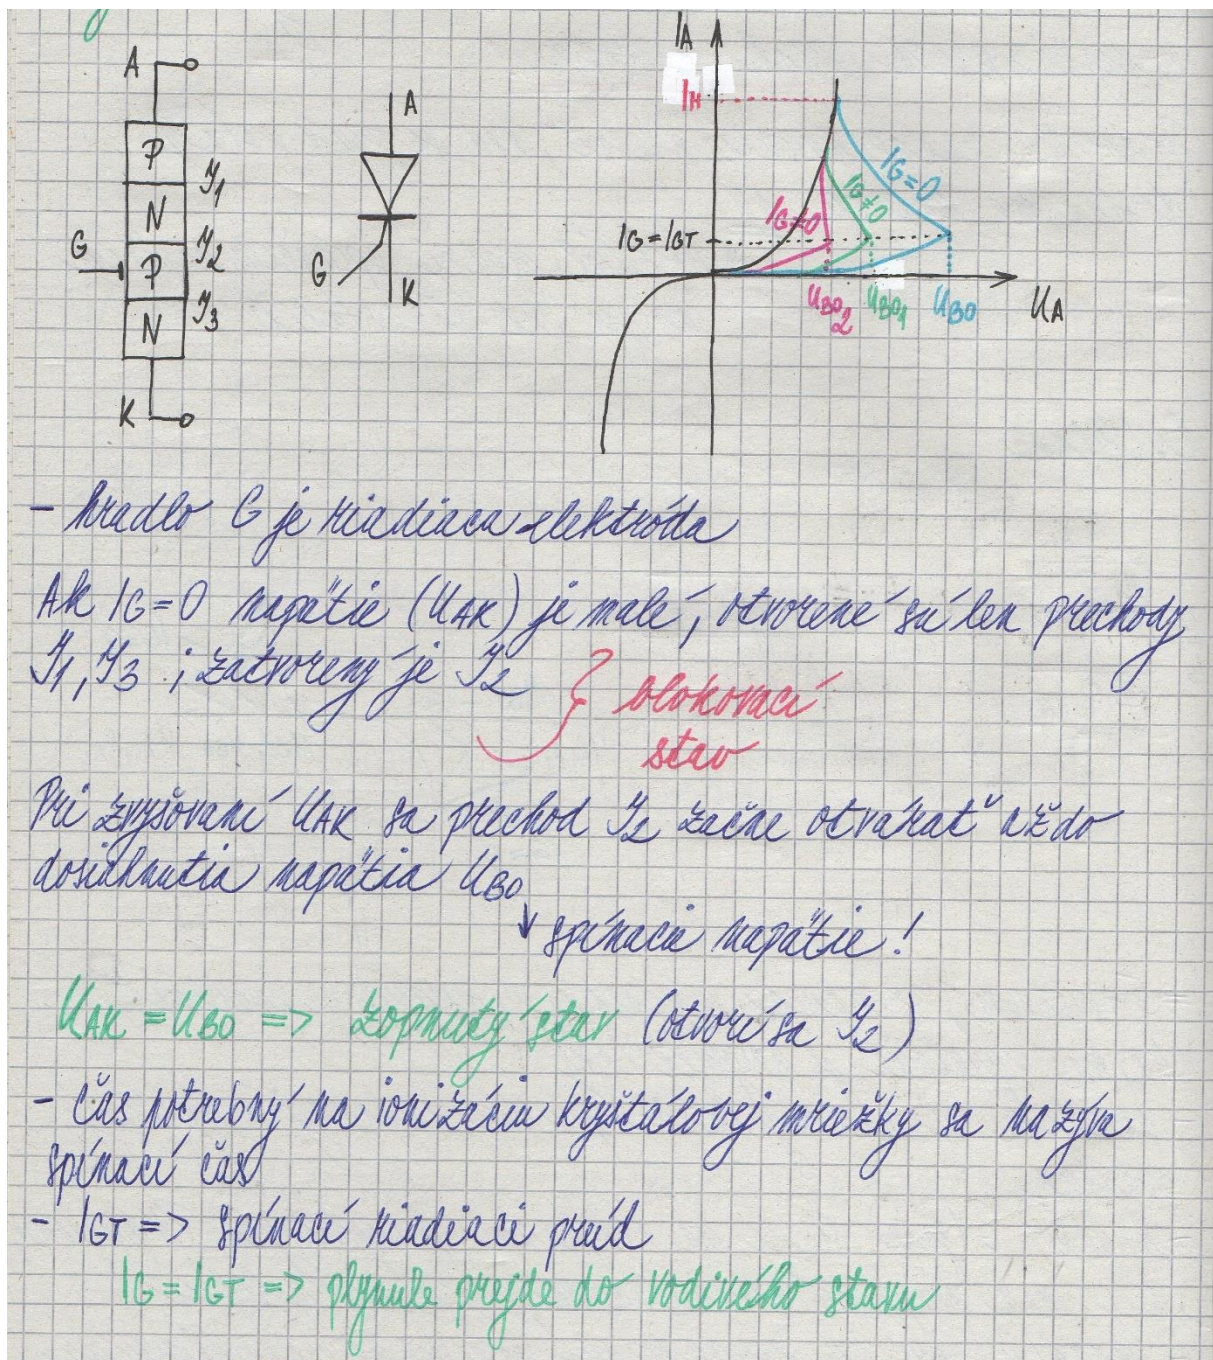 A
P
J1
N
J2
G
P
J3
N
K
A
G
K
IA
IH
IG=0
IG≠0
IG≠0
IG=IGT
UBO2
UBO1
UBO
UA
- hradlo G je riadiaca elektróda
Ak IG=0 napätie (UAK) je malé, otvorené sú len prechody
J1, J3 ; zatvorený je J2
blokovací
stav
Pri zvyšovaní UAK sa prechod J2 začne otvárať až do
dosiahnutia napätia UBO
↓ spínacie napätie!
UAK = UBO => zopnutý stav (otvorí sa J2)
- čas potrebný na ionizáciu kryštálovej mriežky sa nazýva
spínací čas
- IGT => spínací riadiaci prúd
IG = IGT => plynule prejde do vodivého stavu